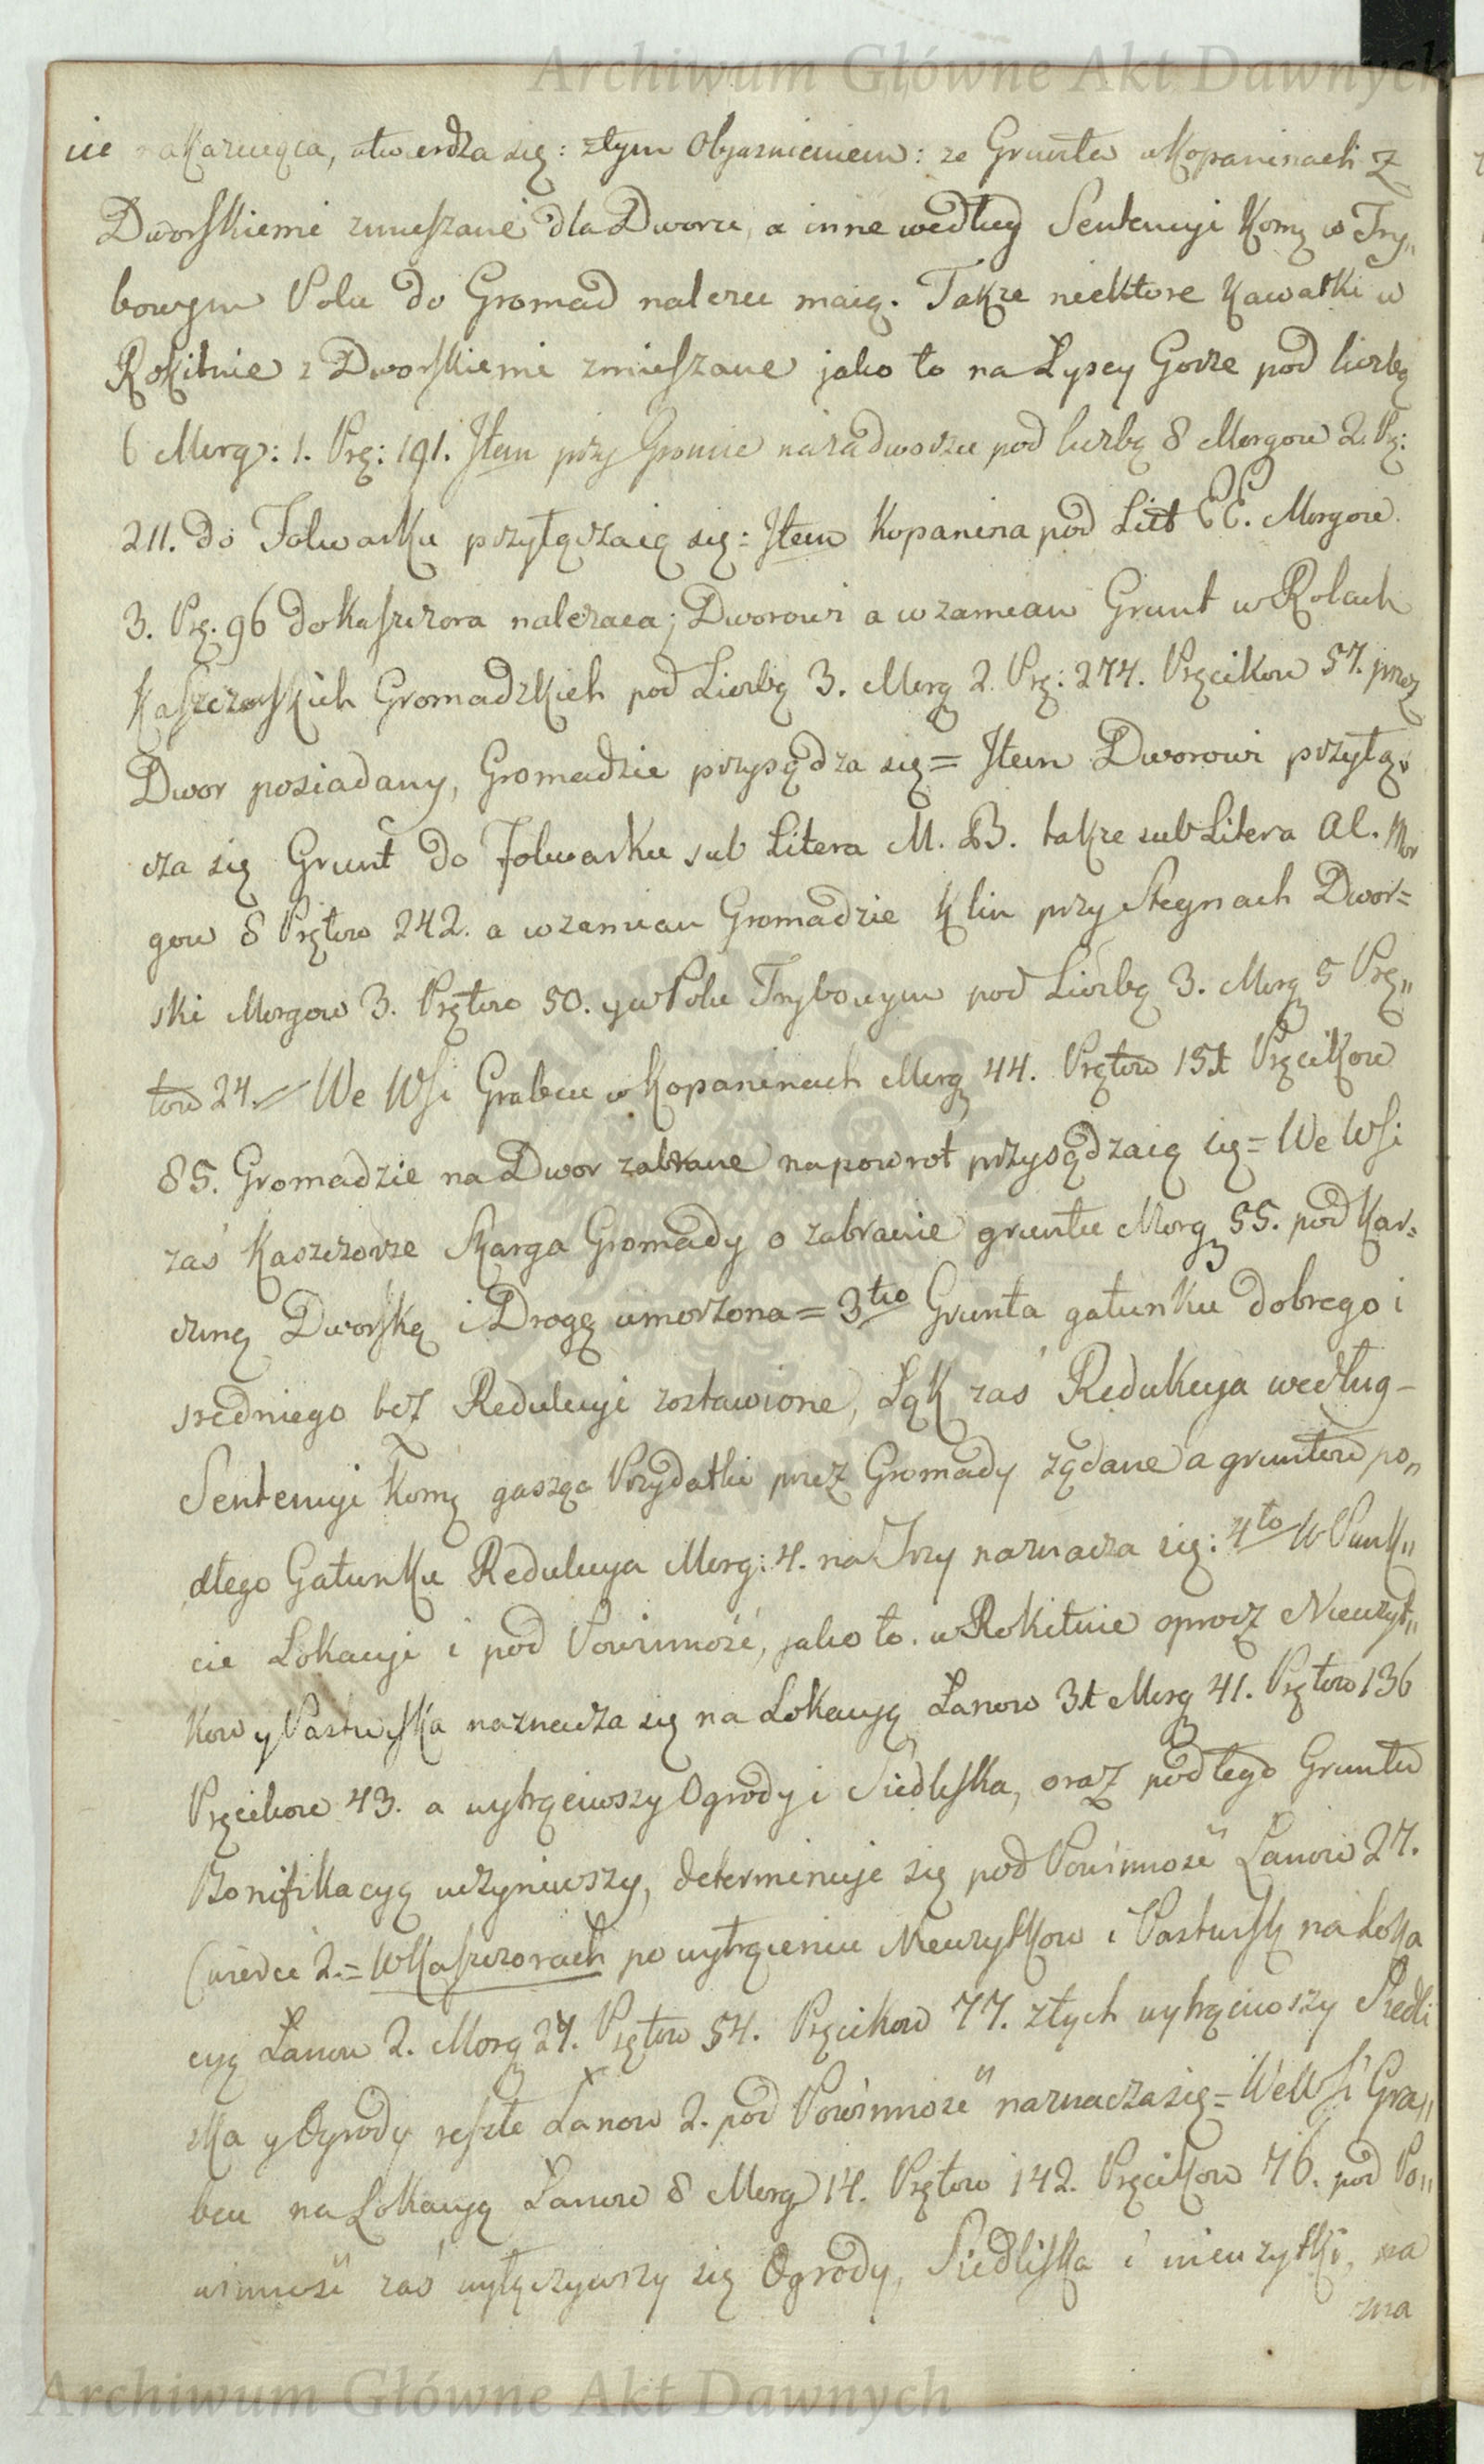 Archiwum Główne Akt Dawnych
nie nakazuiąca, utwierdza się: ztym Obyasnieniem: ze Grunta w Kopaninach z
Dworskiemi zmieszane dla Dworu, a inne według Sentencyi Komꝫ w Try„
bowym Polu do Gromad nalezeć maią. Takze niektore Kawałki w
Rokitnie z Dworskiemi zmieszane jako to na Łysey Gorze pod liczbą
6 Morg: 1. Prę: 191. Item przy Gronie na zadworzu pod liczbą 8 Morgow 2. Prę:
211. do Folwarku przyłączaią się: Item Kopanina pod Litt EE. Morgow
3. Prę. 96 do Kaszczora nalezaca; Dworowi a wzamian Grunt w Rolach
Kaszczorskich Gromadzkich pod Liczbą 3. Morg 2. Prę: 274. Pręcikow 57. przez
Dwor posiadany, Gromadzie przysądza się = Item Dworowi przyłą„
cza się Grunt do Folwarku sub Litera M. B. takze sub Litera Al. Mor
gow 8 Prętow 242. a wzamian Gromadzie Klin przy Stegnach Dwor=
ski Morgow 3. Prętow 50. y w Polu Trybowym pod Liczbą 3. Morg 5 Prę„
tow 24. We Wsi Grabcu w Kopaninach Morg 44. Prętow 151 Pręcikow
85. Gromadzie na Dwor zabrane napowrot przysądzaią się = We Wsi
zaś Kaszczorze Skarga Gromady o zabranie gruntu Morg 55. pod Kar=
czmę Dworską i Drogę umorzona = 3tio Grunta gatunku dobrego i
sredniego bez Redukcyi zostawione, Łąk zaś Redukcya według
Sentencyi Komꝫ gasząca Przydatki przez Gromady ządane a gruntow po„
dłego Gatunku Redukcya Morg: 4. na Trzy naznacza się: 4to W Punk„
cie Lokacyi i pod Powinność, jako to. w Rokitnie oprocz Nieuzyt„
kow y Pastwiska naznacza się na Lokacyą Łanow 31 Morg 41. Prętow 136
Pręcikow 43. a wytrąciwszy Ogrody i Siedliska, oraz podłego Gruntu
Bonifikacyą uczyniwszy, determinuje się pod Powinność Łanow 27.
Cwierci 2. = W Kaszczorach po wytrąceniu Nieuzytkow i Pastwisk na Loka
cyą Łanow 2. Morg 27. Prętow 54. Pręcikow 77. ztych wytrąciwszy Siedli
ska y Ogrody reszte Łanow 2. pod Powinność naznacza się = We Wsi Gra„
bcu na Lokacyą Łanow 8 Morg 14. Prętow 142. Pręcikow 76. pod Po„
winność zaś wyłączywszy się Ogrody, Siedliska i nieuzytki, na
zna
Archiwum Główne Akt Dawnych